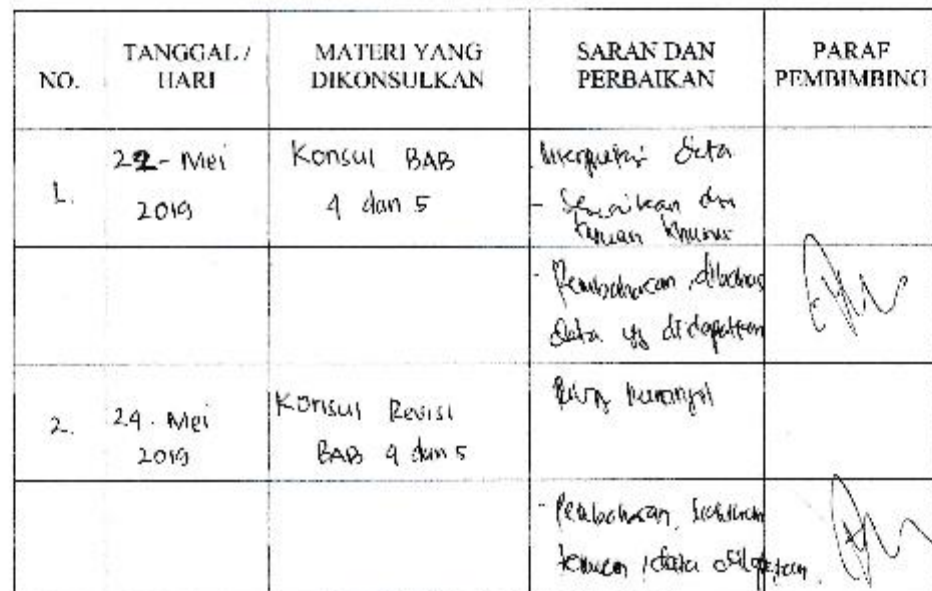 NO.
TANGGAL /
HARI
MATERI YANG
DIKONSULKAN
SARAN DAN
PERBAIKAN
PARAF
PEMBIMBING
1.
22 - Mei
2019
Konsul BAB
4 dan 5
Interpretasi Data
- Sesuaikan dm
tujuan khusus
- Pembahasan, dibahas
data yg didapatkan
2.
24 - Mei
2019
Konsul Revisi
BAB 4 dan 5
- Pembahasan,
temuan, data